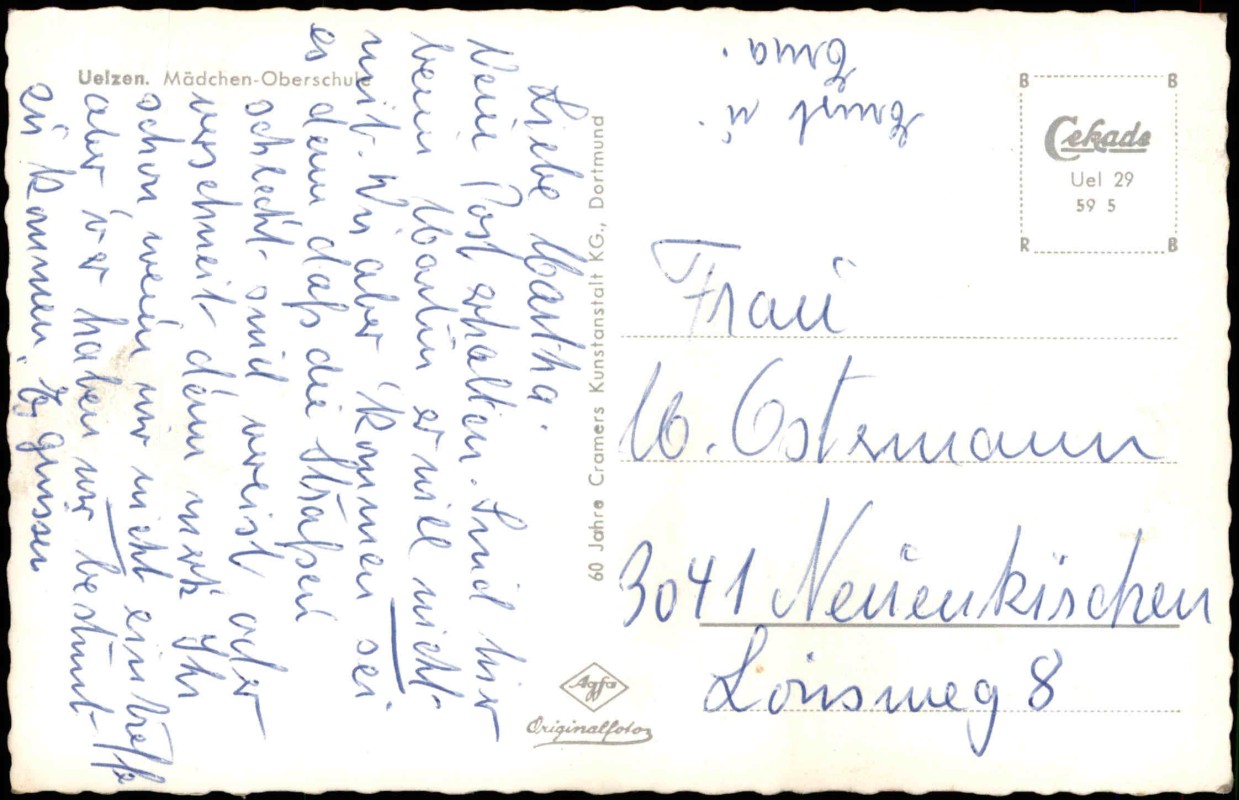 Uelzen. Mädchen-Oberschule
Liebe Martha.
Deine Post erhalten. Sind hier
beim Martin er will nicht
mit. Wir aber kommen sei
es denn daß die Straßen
schlecht sind vereist oder
verschneit dann merk Ihr
schon wenn wir nicht eintreffe
aber vor haben wir bestimt
zu kommen. Es grüssen
Ernst u.
Erna.
60 Jahre Cramers Kunstanstalt KG., Dortmund
B B
Cekade
Uel 29
59 5
R B
Frau
M. Ostermann
3041 Neuenkirchen
Lönsweg 8
Agfa
Originalfoto